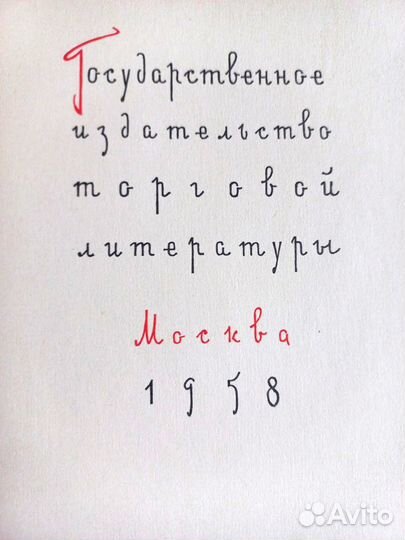 Государственное
издательство
торговой
литературы
Москва
1958
Avito